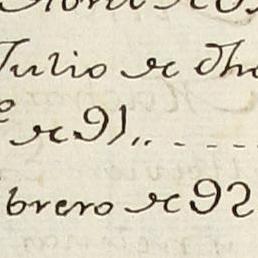 Julio de dho
de 91,, - - - -
brero de 92